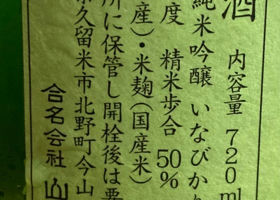 酒
内容量 720ml
純米吟醸 いなびかり
度 精米歩合 50%
産)・米麹(国産米)
所に保管し開栓後は要
久留米市北野町今山
合名会社 山